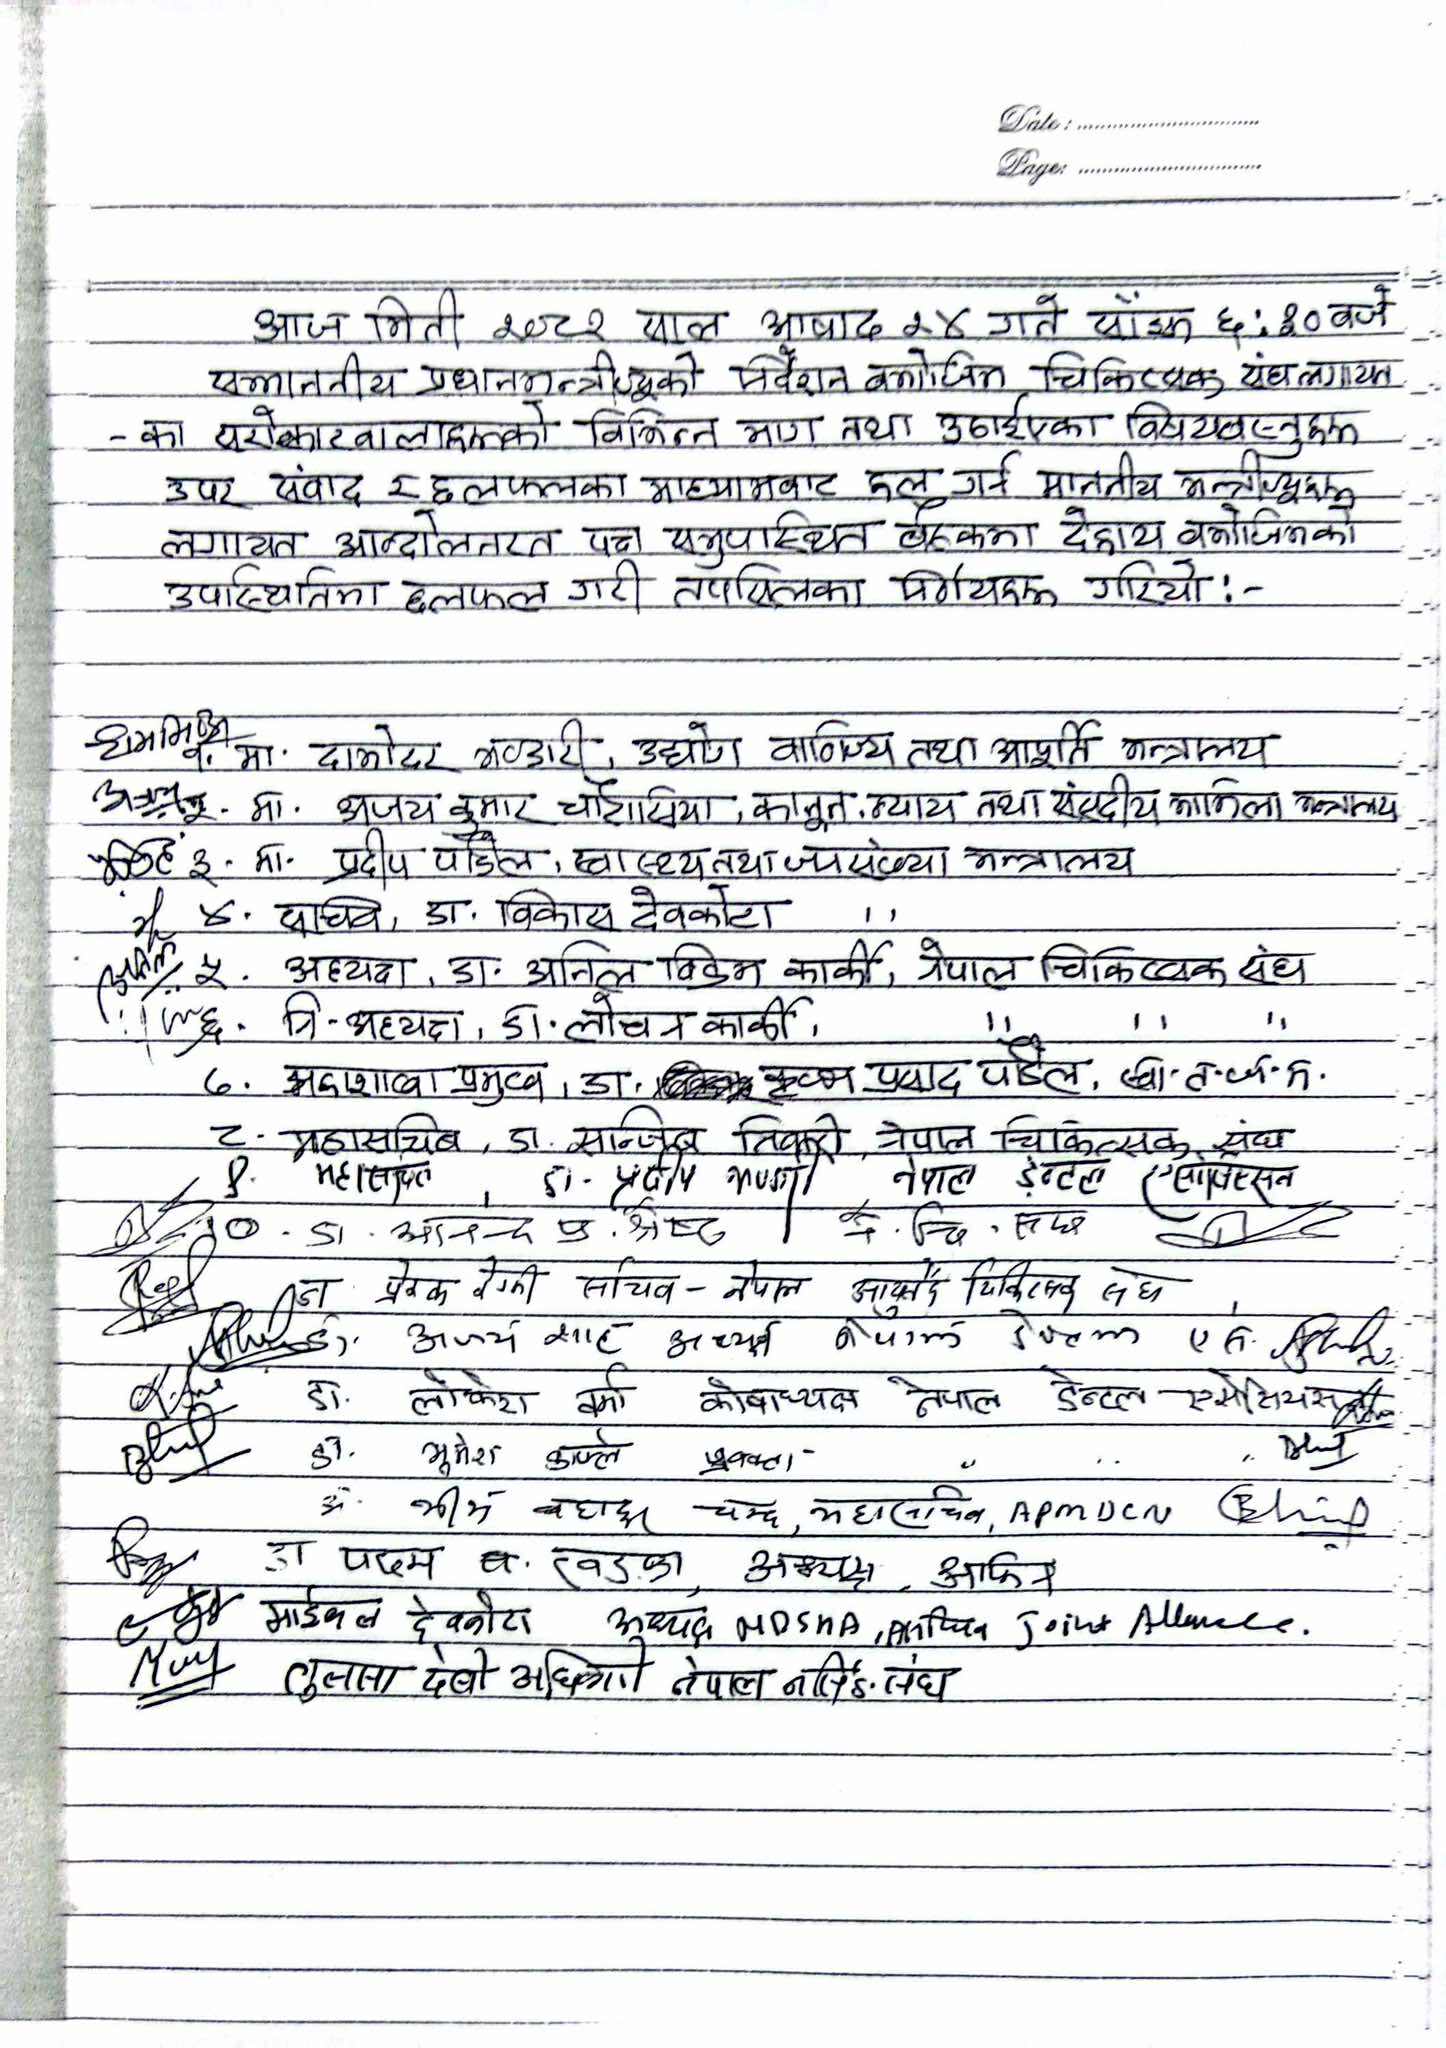 Date : ..............................
Page: ..............................
आज मिती २०८२ साल आषाढ २४ गते साँझ ६:३०बजे
सम्माननीय प्रधानमन्त्रीज्यूको निर्देशन बमोजिम चिकित्सक संघ लगायत
-का सरोकारवालाहरूको विभिन्न माग तथा उठाईएका विषयबस्तुहरू
उपर संवाद र छलफलका माध्यामबाट हल गर्न माननीय मन्त्रीज्यूहरू
लगायत आन्दोलनरत पक्ष समुपास्थित बैठकमा देहाय बमोजिमको
उपस्थितिमा छलफल गरी तपसिलका निर्णयहरू गरियो:-
१. मा. दामोदर भण्डारी, उद्योग वाणिज्य तथा आपूर्ति मन्त्रालय
२. मा. अजय कुमार चौरासिया, कानून, न्याय तथा संसदीय मामिला मन्त्रालय
३. मा. प्रदीप पौडेल, स्वास्थ्य तथा जनसंख्या मन्त्रालय
४. सचिव, डा. विकास देवकोटा ,,
५. अध्यक्ष, डा. अनिल बिक्रम कार्की, नेपाल चिकित्सक संघ
६. नि-अध्यक्ष, डा. लोचन कार्की, ,, ,, ,,
७. महाशाखा प्रमुख, डा. कृष्ण प्रसाद पौडेल, स्वा.त.ज.म.
८. महासचिब, डा. सन्जिब तिवारी, नेपाल चिकित्सक संघ
९. महासचिव, डा. प्रदीप भण्डारी नेपाल डेन्टल एसोसिएसन
१०. डा. आनन्द प्र. श्रेष्ठ ने. चि. संघ
डा प्रेरक रेग्मी सचिव - नेपाल आयुर्वेद चिकित्सक संघ
डा. अजय शाह अध्यक्ष नेपाल डेन्टल ए स.
डा. लोकेश वर्मा कोषाध्यक्ष नेपाल डेन्टल एसोसियसन
डा. भूमेश काफ्ले प्रवक्ता- ,, ,, ,,
डा. भीम बहादुर चन्द, महासचिव, APMDCN
डा पदम ब. खडका, अध्यक्ष, आफिन
माईकल देवकोटा अध्यक्ष NDSHA, Joint Allience.
तुलसा देवी अधिकारी नेपाल नर्सिङ संघ